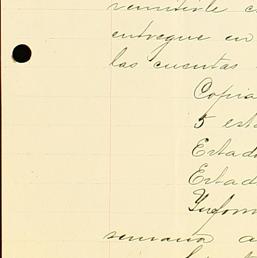 remitirle c
entregue en
las cuentas
Copia
5 est
Estad
Estad
Inform
semana a